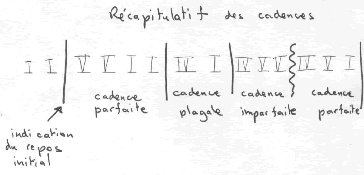 Récapitulatif des cadences
I I V V I I IV I IV V V IV V I
cadence parfaite
cadence plagale
cadence imparfaite
cadence parfaite
indication
du repos
initial